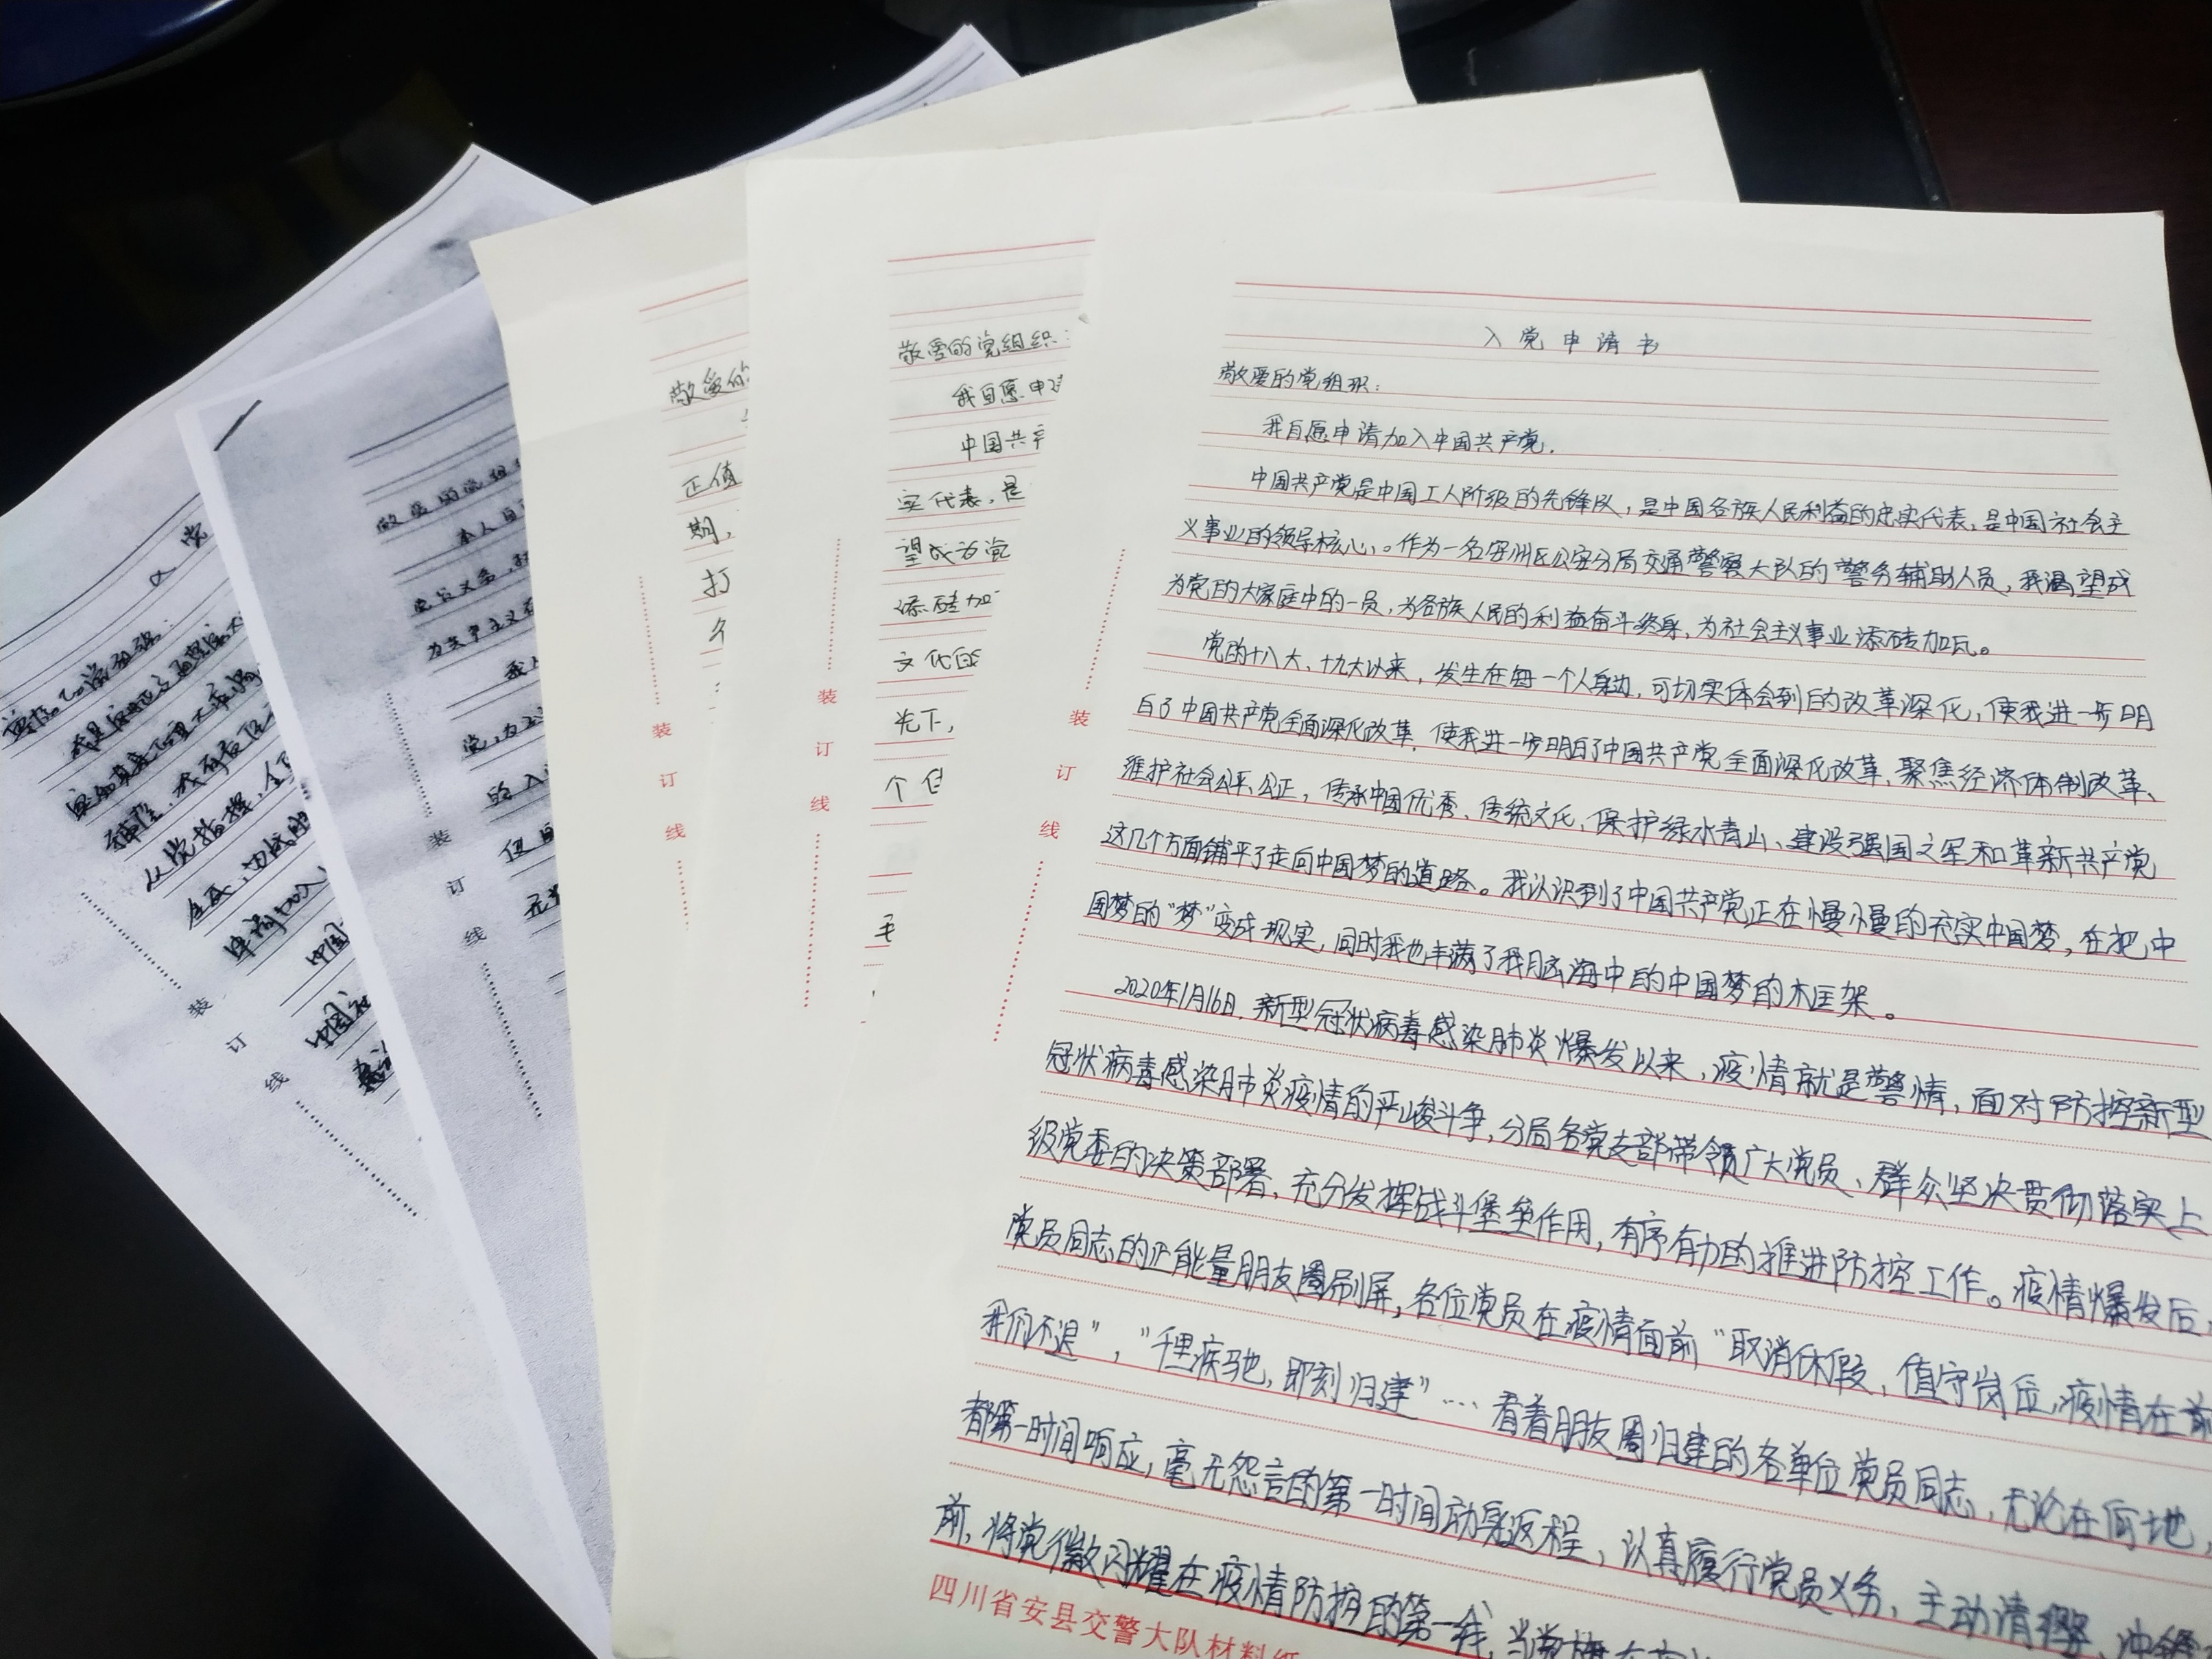 入党申请书
敬爱的党组织：
我自愿申请加入中国共产党.
中国共产党是中国工人阶级的先锋队，是中国各族人民利益的忠实代表，是中国社会主
义事业的领导核心。作为一名安州区公安分局交通警察大队的警务辅助人员，我渴望成
为党的大家庭中的一员，为各族人民的利益奋斗终身，为社会主义事业添砖加瓦。
党的十八大、十九大以来，发生在每一个人身边，可切实体会到的改革深化，使我进一步明
白了中国共产党全面深化改革，使我进一步明白了中国共产党全面深化改革、聚焦经济体制改革、
维护社会公平、公正，传承中国优秀、传统文化、保护绿水青山、建设强国之军和革新共产党
这几个方面铺平了走向中国梦的道路。我认识到了中国共产党正在慢慢的充实中国梦，在把中
国梦的“梦”变成现实，同时我也丰满了我脑海中的中国梦的木框架。
2020年1月16日，新型冠状病毒感染肺炎爆发以来，疫情就是警情，面对防控新型
冠状病毒感染肺炎疫情的严峻斗争，分局各党支部带领广大党员、群众坚决贯彻落实上
级党委的决策部署，充分发挥战斗堡垒作用，有序有力的推进防控工作。疫情爆发后，
党员同志的正能量朋友圈刷屏，各位党员在疫情面前“取消休假，值守岗位，疫情在前
我们不退”，“千里疾驰，即刻归建”…. 看着朋友圈归建的各单位党员同志，无论在何地，
都第一时间响应，毫无怨言的第一时间动身返程，认真履行党员义务，主动请缨、冲锋
前，将党徽闪耀在疫情防护的第一线，当党旗在
四川省安县交警大队材料纸
装
订
线
敬爱的党组织：
我自愿申请
中国共产
实代表，是
望成为党
添砖加
文化的
先下，
个
毛
装
订
线
敬爱的
正值
期，
打
装
订
线
敬爱的党组
本人自
党员义务，
为共产主义
我
党，为
的入
但
无
装
订
线
入党
从党指挥，
申请加入
中国
中国社
装
订
线